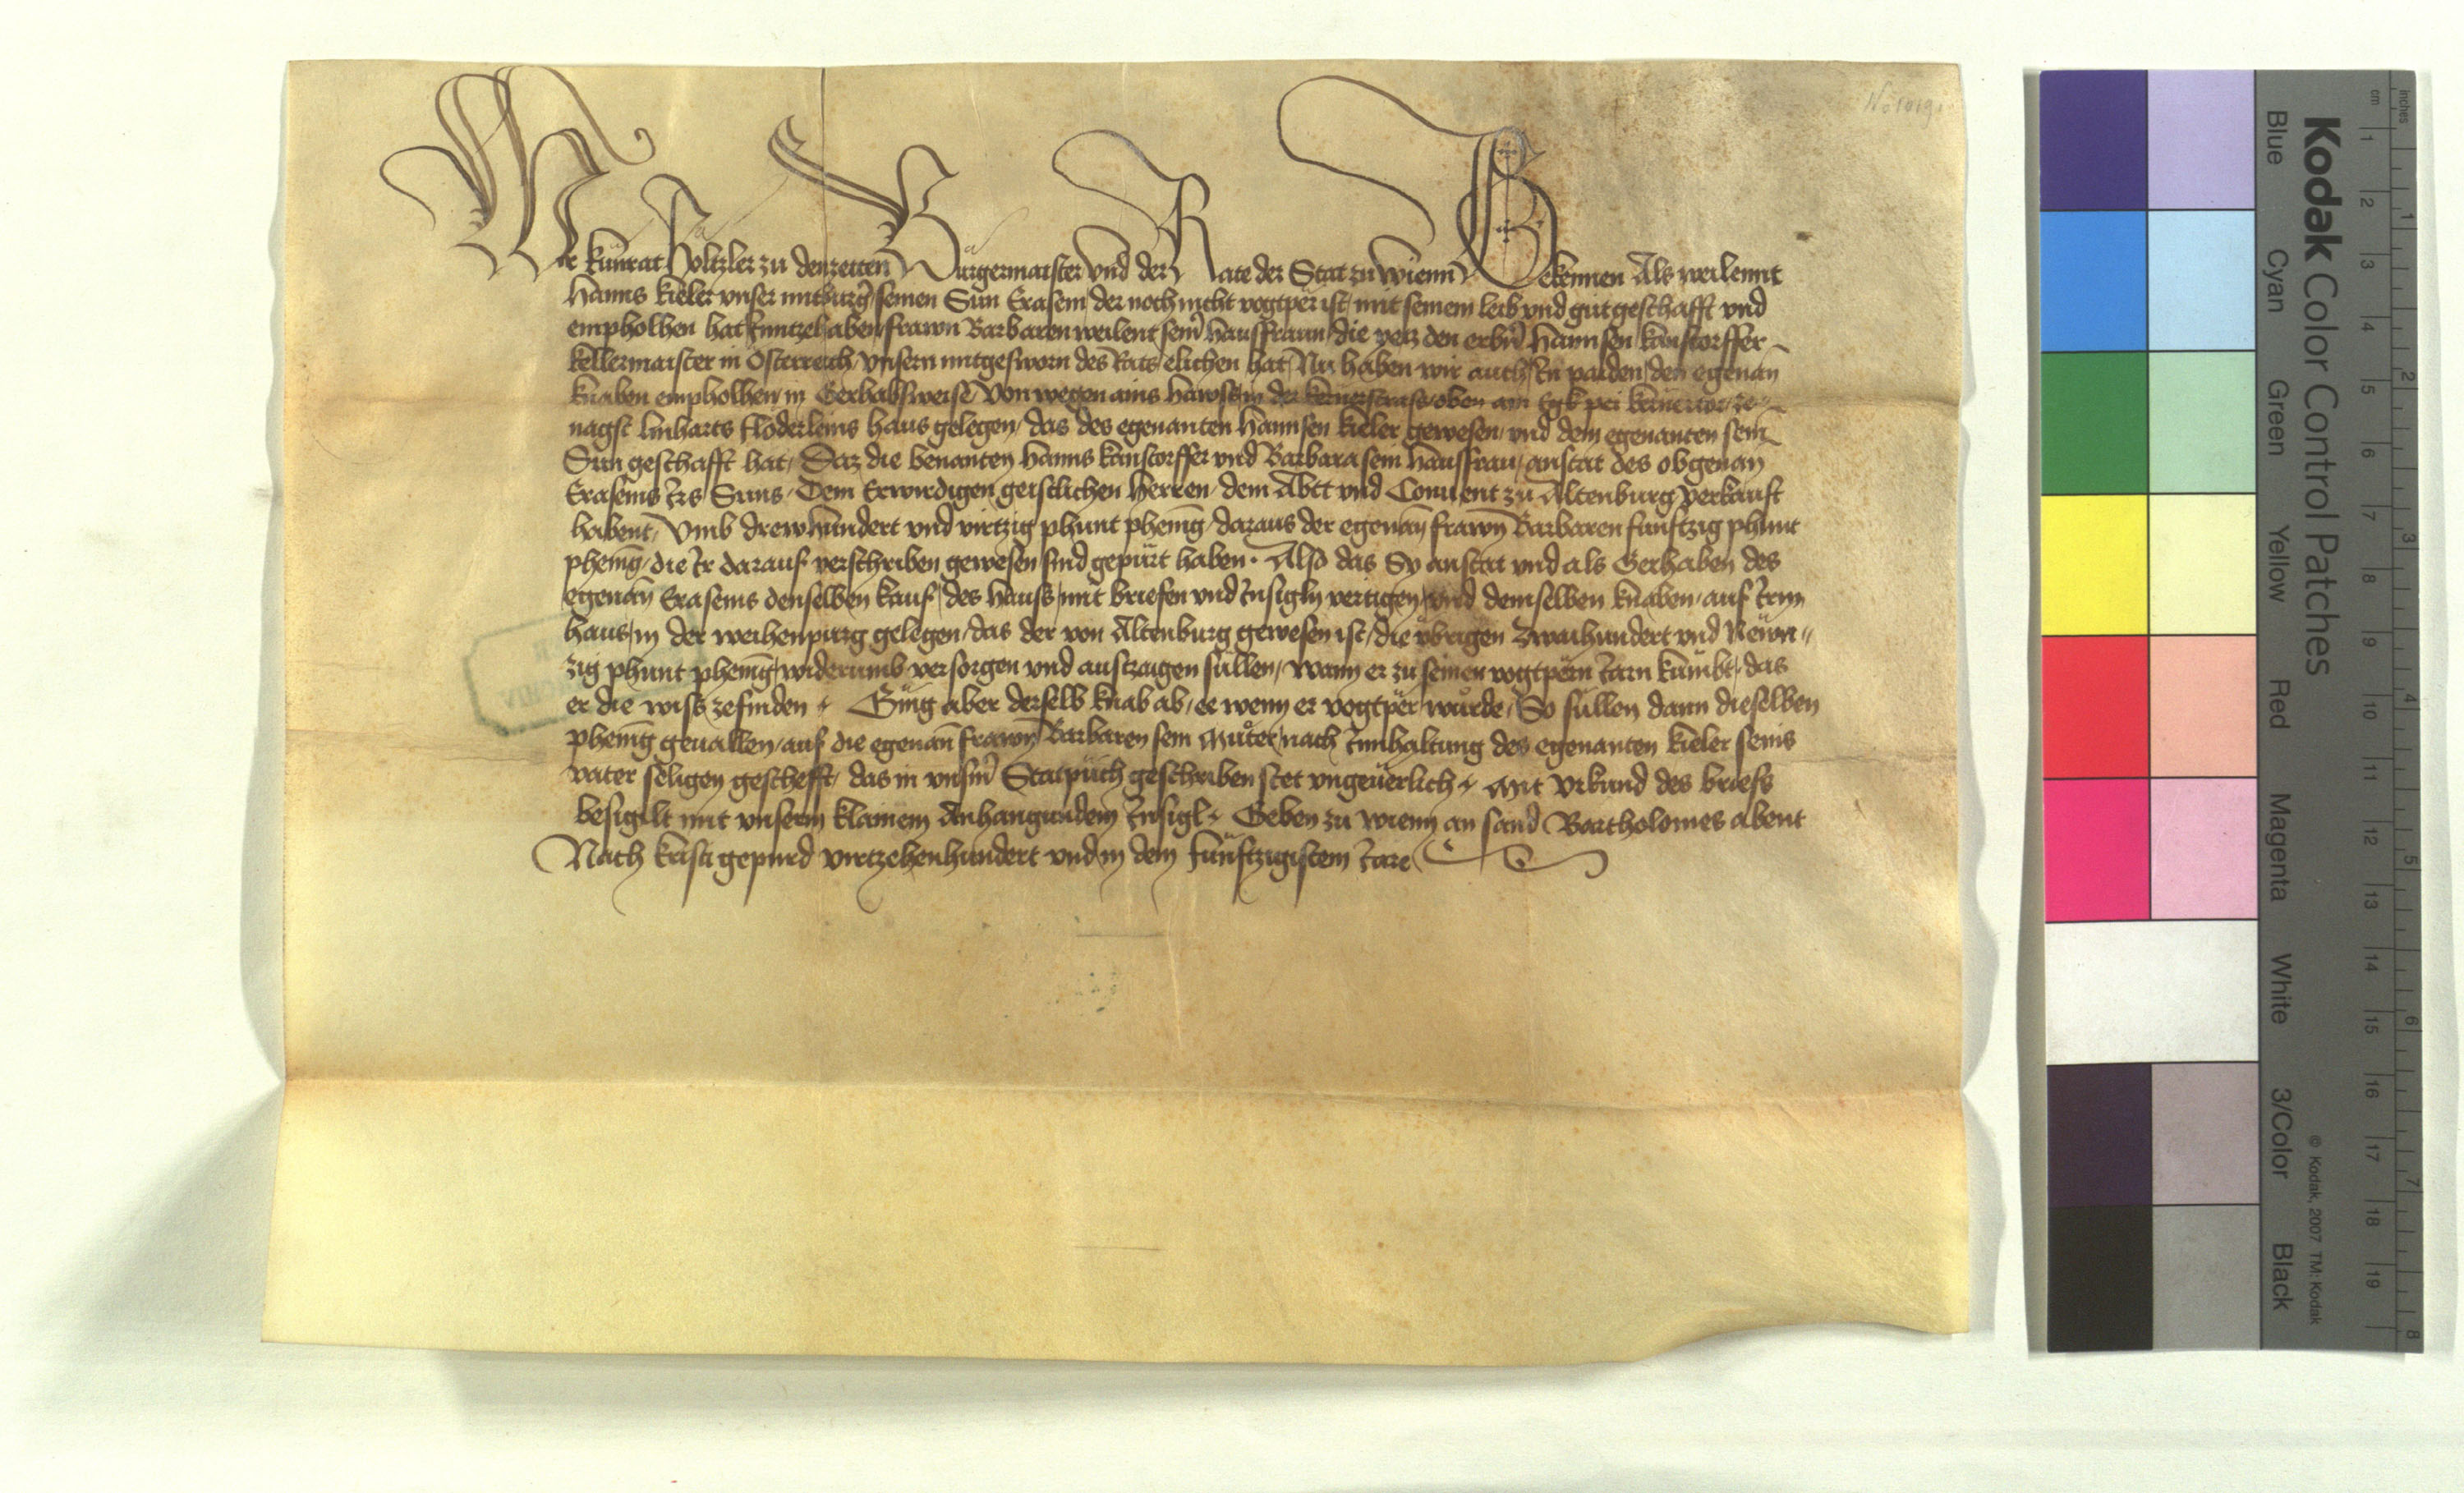 No 1019
Wir kunrat Holtzler zu den zeiten Burgermaister vnd der Rate der Stat zu wienn Bekennen Als weilennt
Hanns kieler vnser mitburg̃ seinen Sun Erasem der noch nicht vogtper ist mit seinem leib vnd gut geschafft vnd
empholhen hat Inntzehaben frawn Barbaren weilent sein̄ hausfraun die yetz den erbñ Hannsen kanstorffer
kellermaister in Osterreich vnsern mitgesworn des Rats elichen hat Nu haben wir auch In paiden den egenan̄
knaben empholhen in Gerhabsweise Von wegen ains hawss in der kernerstrass oben am Egk pei kernertor ze
nagst linharts flöderleins haus gelegen das des egenanten Hannsen kieler gewesen vnd dem egenanten sein̄
Sun geschafft hat Daz die benanten Hanns kanstorffer vnd Barbara sein hausfrau anstat des obgenan̄
Erasems Irs Suns Dem Erwirdigen geistlichen Herren dem Abtt vnd Conuent zu Altenburg verkaufft
habent Vmb drewhundert vnd virtzig phunt phenīg daraus der egenan̄ frawn̄ Barbaren funftzig phunt
phenīg die Ir darauf verschriben gewesen sind gepürt haben Also das Sy anstat vnd als Gerhaben des
egenan̄ Erasems denselben kauf des hauss mit briefen vnd Insigln vertigen vnd demselben knaben auf Irm
haus in der weihenpurg gelegen das der von Altenburg gewesen ist die übrigen zwaihundert vnd Newn
zig phunt phenīg widerumb versorgen vnd auszaigen süllen wann er zu seinen vogtpern Iarn kumbt das
er die wiss zefinden Ging aber derselb knab ab ee wenn er vogtper würde So süllen dann dieselben
phenīg geuallen auf die egenan̄ frawn̄ Barbaren sein Muter nach Innhaltung des egenanten kieler seins
vater seligen gescheft das in vnsm̄ Statpuch geschriben stet vngeuerlich Mit vrkund des briefs
besigilt mit vnserm klainem Anhangundem Insigl Geben zu wienn an sand Bartholomes abent
Nach kristi gepurd virtzehenhundert vnd in dem funftzigistem Iare
Kodak Color Control Patches
Blue Cyan Green Yellow Red Magenta White 3/Color Black
© Kodak, 2007 TM: Kodak
cm 1 2 3 4 5 6 7 8 9 10 11 12 13 14 15 16 17 18 19
inches 1 2 3 4 5 6 7 8